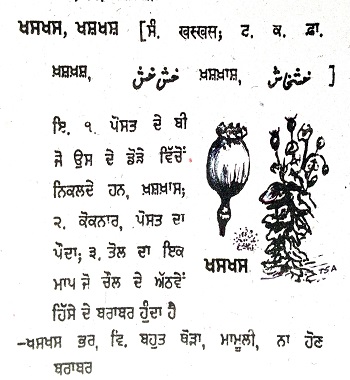 ਖਸਖਸ, ਖਸ਼ਖਸ਼ [ਸੰ. ਖਸ੍ਖਸ; ਟ. ਕ. ਫ਼ਾ.
ਖ਼ਸ਼ਖ਼ਸ਼, خشخش ਖ਼ਸ਼ਖ਼ਾਸ਼, خشخاش ]
ਇ. ੧. ਪੋਸਤ ਦੇ ਬੀ
ਜੋ ਉਸ ਦੇ ਡੋਡੇ ਵਿੱਚੋਂ
ਨਿਕਲਦੇ ਹਨ, ਖ਼ਸ਼ਖ਼ਾਸ;
੨. ਕੋਕਨਾਰ, ਪੋਸਤ ਦਾ
ਪੌਦਾ; ੩. ਤੋਲ ਦਾ ਇਕ
ਮਾਪ ਜੋ ਚੌਲ ਦੇ ਅੱਠਵੇਂ
ਹਿੱਸੇ ਦੇ ਬਰਾਬਰ ਹੁੰਦਾ ਹੈ
ਖਸਖਸ
TSA
–ਖਸਖਸ ਭਰ, ਵਿ. ਬਹੁਤ ਥੋੜਾ, ਮਾਮੂਲੀ, ਨਾ ਹੋਣ
ਬਰਾਬਰ